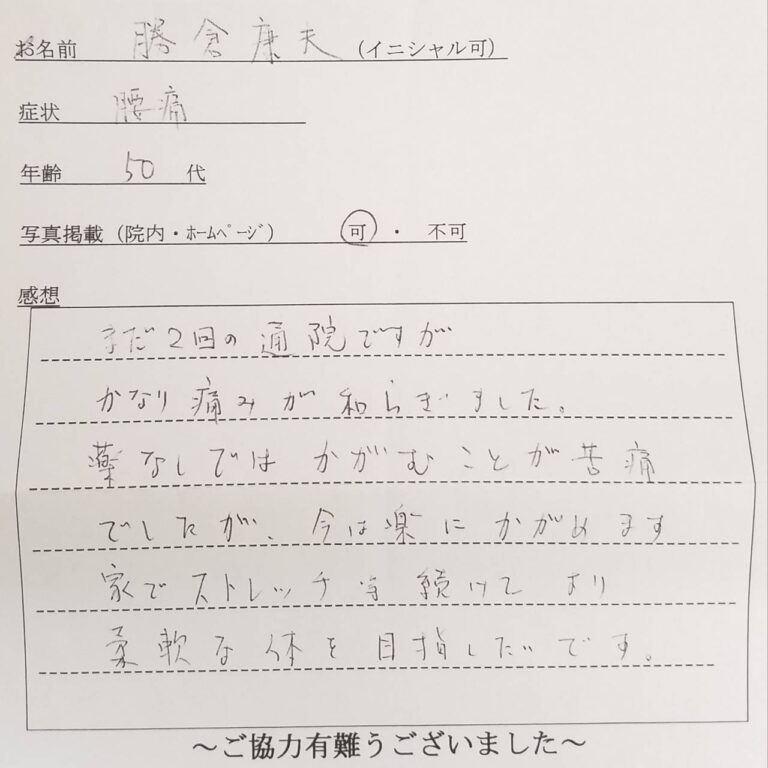 お名前 勝倉康夫 (イニシャル可)
症状 腰痛
年齢 50 代
写真掲載 (院内・ホームページ) 可 ・ 不可
感想
まだ2回の通院ですが
かなり痛みが和らぎました。
薬なしではかがむことが苦痛
でしたが、今は楽にかがめます
家でストレッチ 続けて より
柔軟な体を目指したいです。
~ご協力有難うございました~